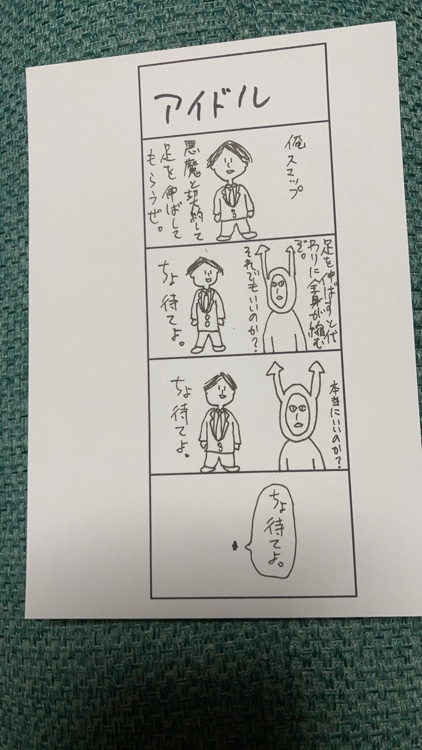 アイドル
俺スマップ
悪魔と契約して
足を伸ばして
もらうぜ。
足を伸ばすと代
わりに全身が縮む
ぞ。
それでもいいのか?
ちょ待てよ。
本当にいいのか?
ちょ待てよ。
ちょ待てよ。